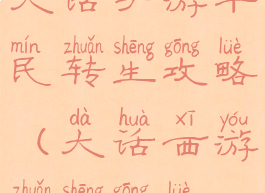 mín zhuǎn shēng gōng lüè
民转生攻略
dà huà xī yóu
（大话西游
zhuǎn shēng gōng lüè